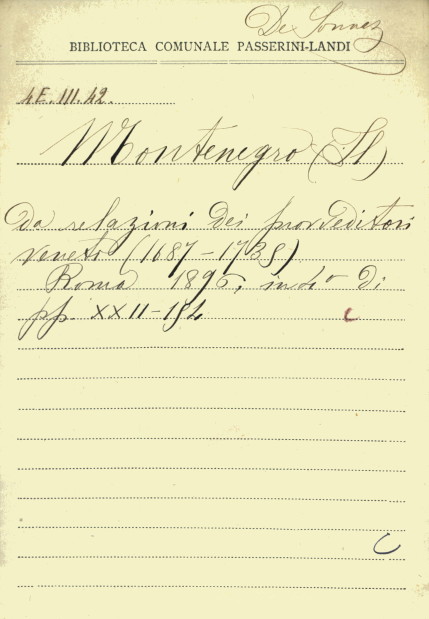 De
BIBLIOTECA COMUNALE PASSERINI-LANDI
4E.III.42.
Montenegro (Il)
da relazioni dei provveditori
veneto (1687-1735)
Roma 1896, in 4° di
pp. XXII-184
C
C